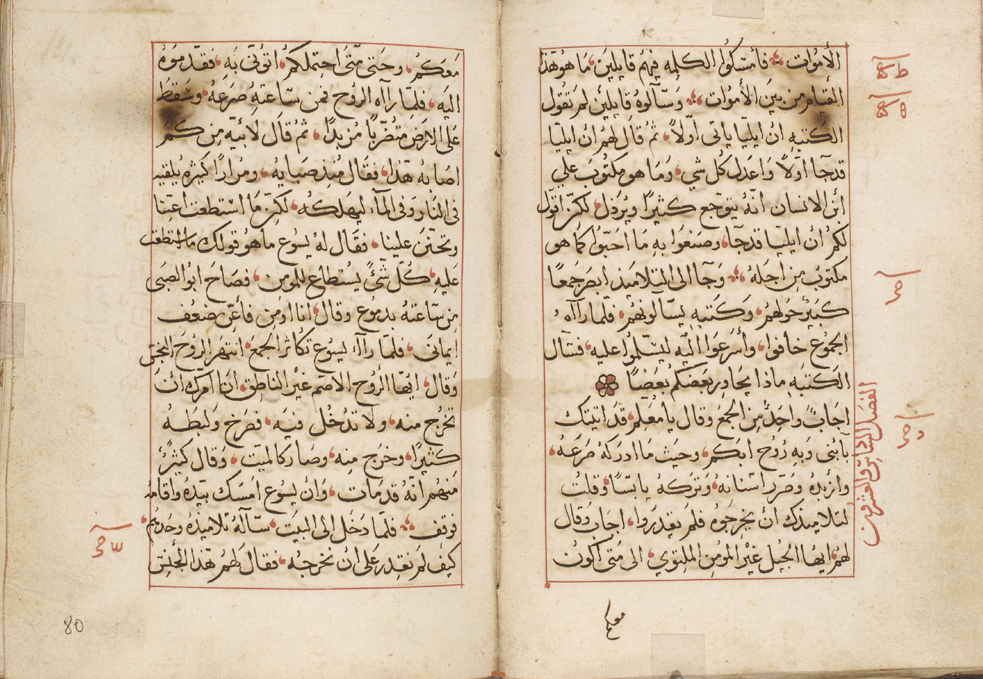 الأموات فأمسكوا الكلمه فيهم قايلين ما هو هذا
القيام من بين الأموات وسألوه قايلين لم تقول
الكتبه ان ايليا ياتي اولاً ثم قال لهم ان ايليا
قد جا اولاً واعدل كل شي وما هو مكتوب علي
ابن الانسان انه يوجع كثيرا ويرذل لكن اقول
لكم ان ايليا قد جا وصنعوا به ما احبوا كما هو
مكتوب من اجله وجا الى التلاميذ ابصر جمعا
كبير حولهم وكتبه يسالونهم فلما راآه
الجموع خافوا وأسرعوا اليه ليسلموا عليه فسال
الكتبه ماذا يجادر بعضكم بعضا
اجاب واحد من الجمع وقال يا معلم قد اتيتك
بابني وبه روح ابكم وحيث ما ادركه صرعه
وازبده وضرر اسنانه وتركه يابسا وقلت
لتلاميذك أن يخرجوه فلم يقدروا اجاب وقال
لهم ايها الجيل غير المؤمن الملتوي الى متى أكون
معكم
الفصل السادس والعشرون
معكم وحتى متى احتملكم اتوني به فقدموه
اليه فلما رآاه الروح فمن ساعته صرعه وسقط
على الارض متضربا مزبدا ثم قال لابيه من كم
اصابه هذا فقال منذ صباه ومرارا كثيره يلقيه
في النار وفي الماء ليهلكه لكن ما استطعت اعنا
وتحنن علينا فقال له يسوع ما هو قولك ما استطعت
عليه كل شئ يستطاع للمؤمن فصاح ابو الصبي
من ساعته بدموع وقال انا اومن فأعن ضعف
ايماني فلما رآا يسوع تكاثر الجمع انتهر الروح النجس
وقال ايها الروح الاصم غير الناطق انا امرك أن
تخرج منه ولا تدخل فيه فصرخ ولبطه
كثيرا وخرج منه وصار كالميت وقال كثير
منهم أنه قد مات وان يسوع امسك بيده واقامه
فوقف فلما دخل الى البيت سآله تلاميذه وحدهم
كيف لم نقدر على ان نخرجه فقال لهم هذا الجنس
80